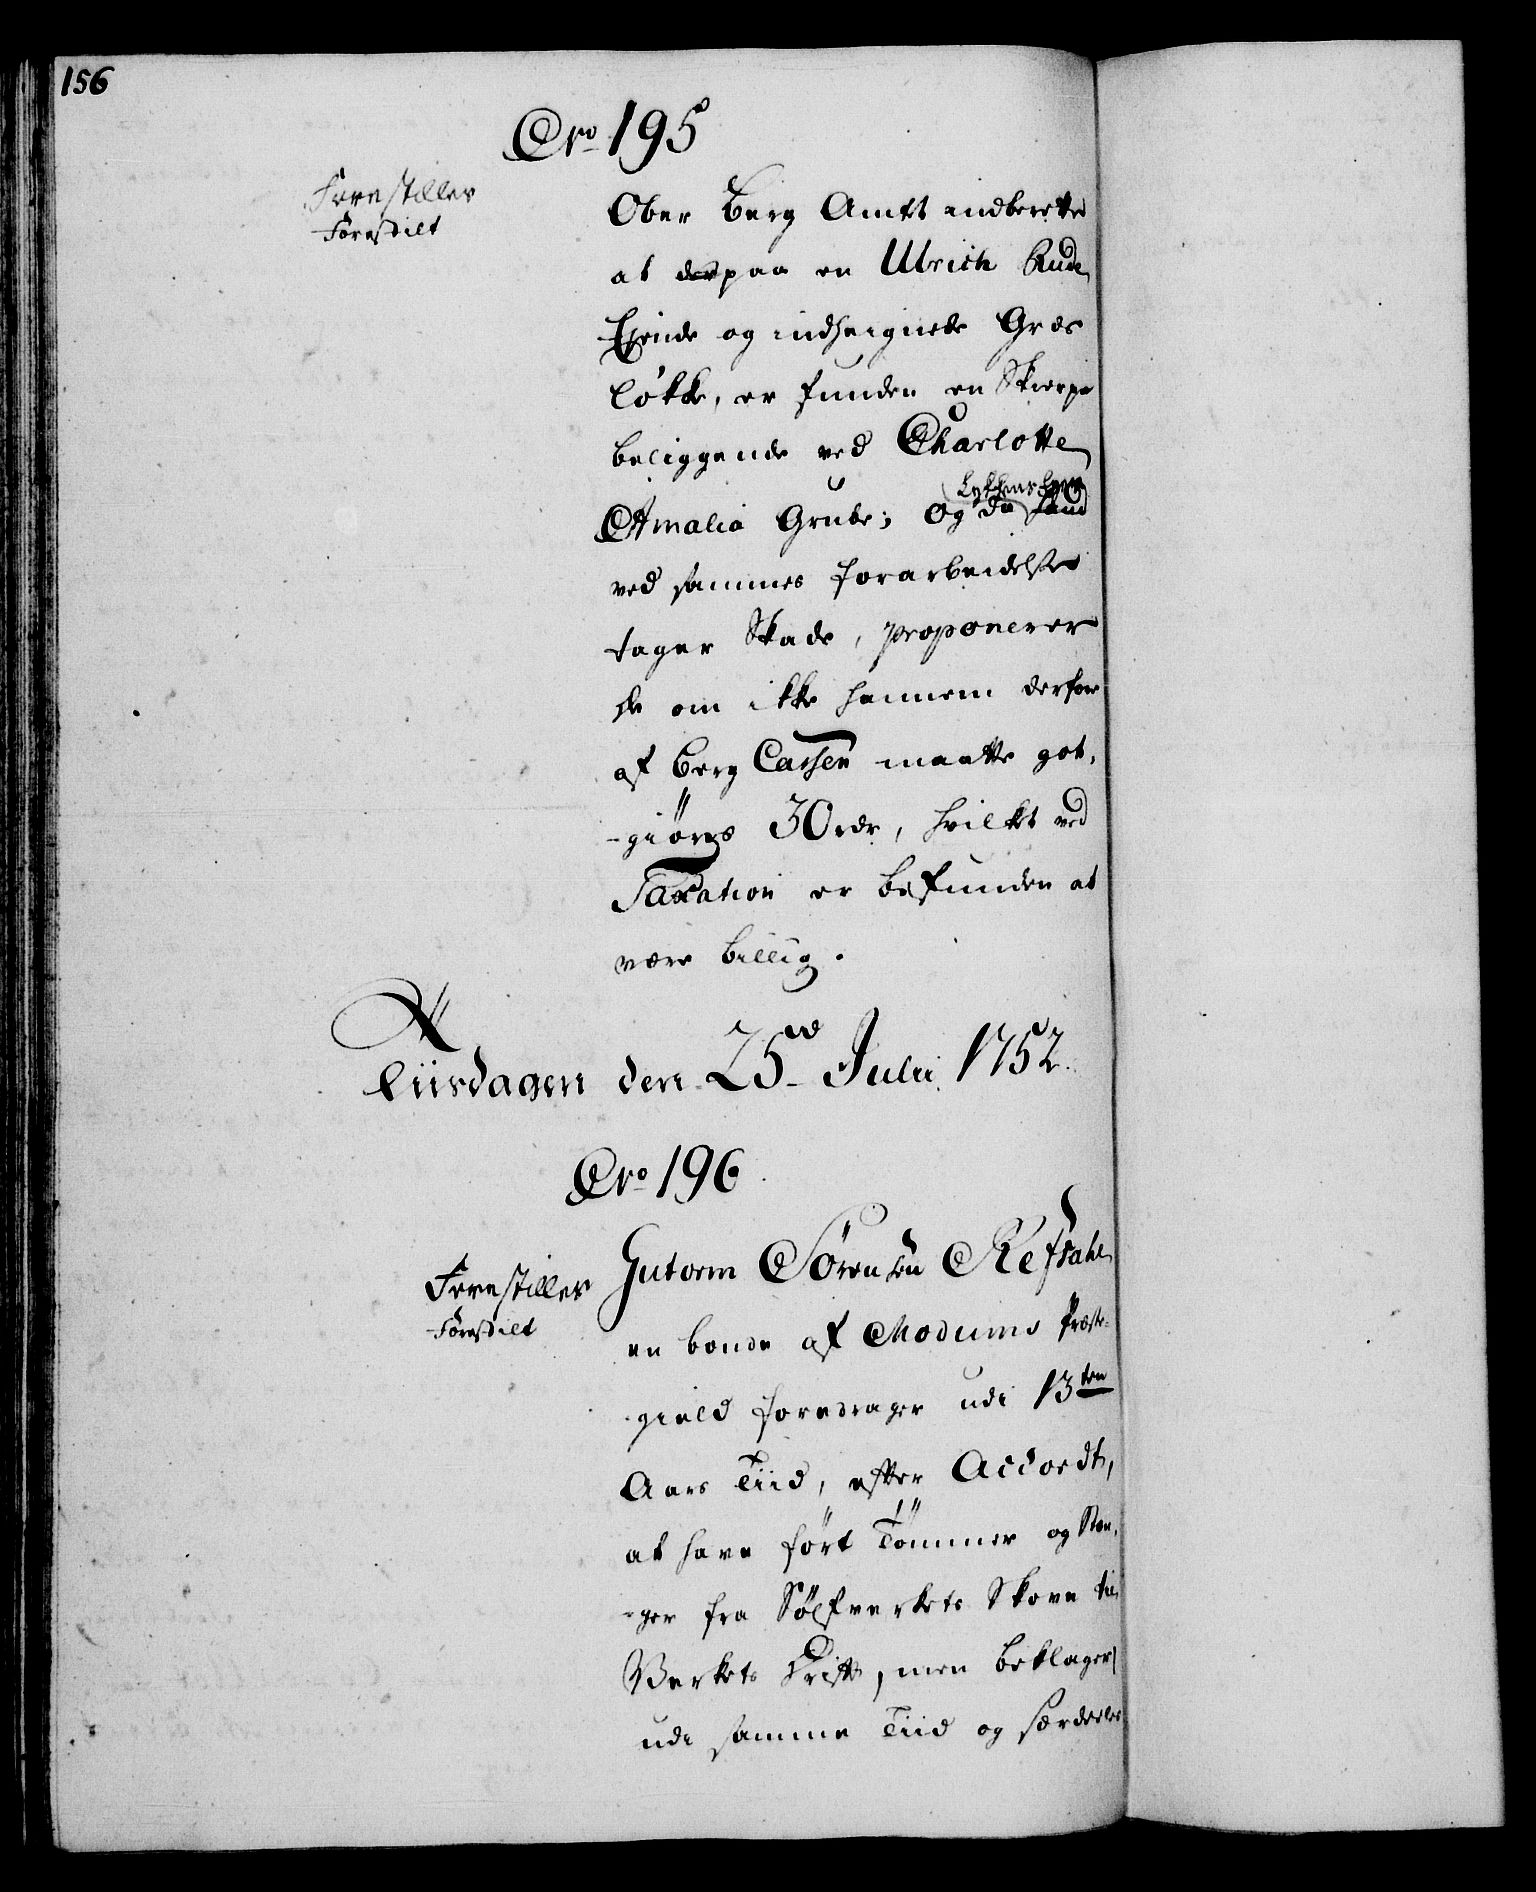 156
No 195
Forestilles
Forestilt
Ober Berg Amtet indberetter
at der paa en Ulrich Rude
Ejende og indheignede Græs
løkke, er funden en Skierpe
beliggende ved Charlotte
Amalia Grube; Og da
ved sammes forarbeidelse
tager Skade, proponerer
de om ikke hannem derfore
af Berg Cassen maatte got-
-giøres 30 rdr, hvilket ved
Taxation er befunden at
være billig.
Tiirsdagen den 25de Julii 1752.
No 196
Forestilles
Forestilt
Gutorm Sørensen Refsahl
en bonde af Modums Præste-
-gield foredrager udi 13ten
Aars Tiid, efter Accordt,
at have ført Tømmer og Stæn-
-ger fra Sølfverkets Skove til
Verkets Drift, men beklager
udi samme Tiid og særdeeles